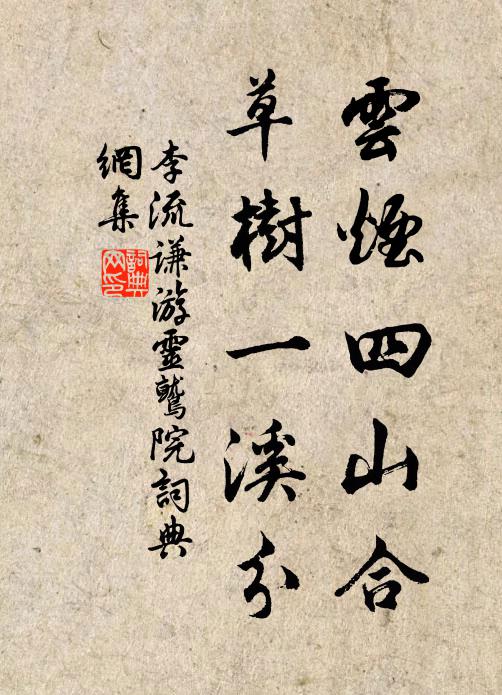 雲煙四山合
草樹一溪分
李流谦游靈鷲院詞典
網集
詞典
网印